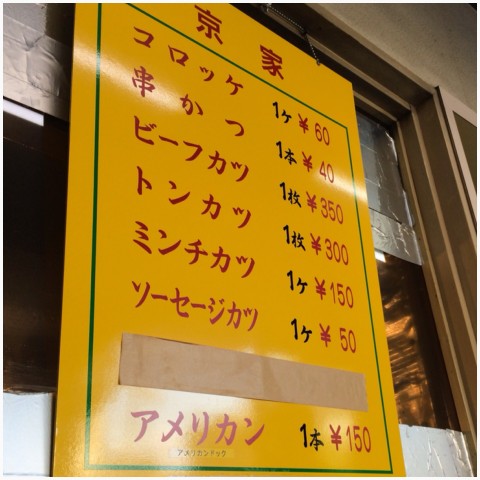 京家
コロッケ 1ケ ¥60
串かつ 1本 ¥40
ビーフカツ 1枚 ¥350
トンカツ 1枚 ¥300
ミンチカツ 1ケ ¥150
ソーセージカツ 1ケ ¥50
アメリカン 1本 ¥150
アメリカンドック